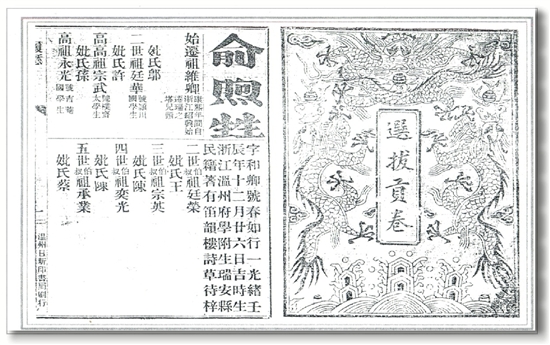 選拔貢卷
俞煦甡
字和卿號春如行一光緒壬
辰年十二月廿六日吉時生
浙江溫州府學附生瑞安縣
民籍著有笛韻樓詩草待梓
始遷祖維卿
妣氏鄔
二世祖廷華
妣氏許
高高祖宗武
妣氏孫
高祖永光
國學生
二世叔祖廷榮
妣氏王
三世伯叔祖宗英
妣氏陳
四世伯叔祖奕光
妣氏陳
五世伯叔祖承業
妣氏蔡